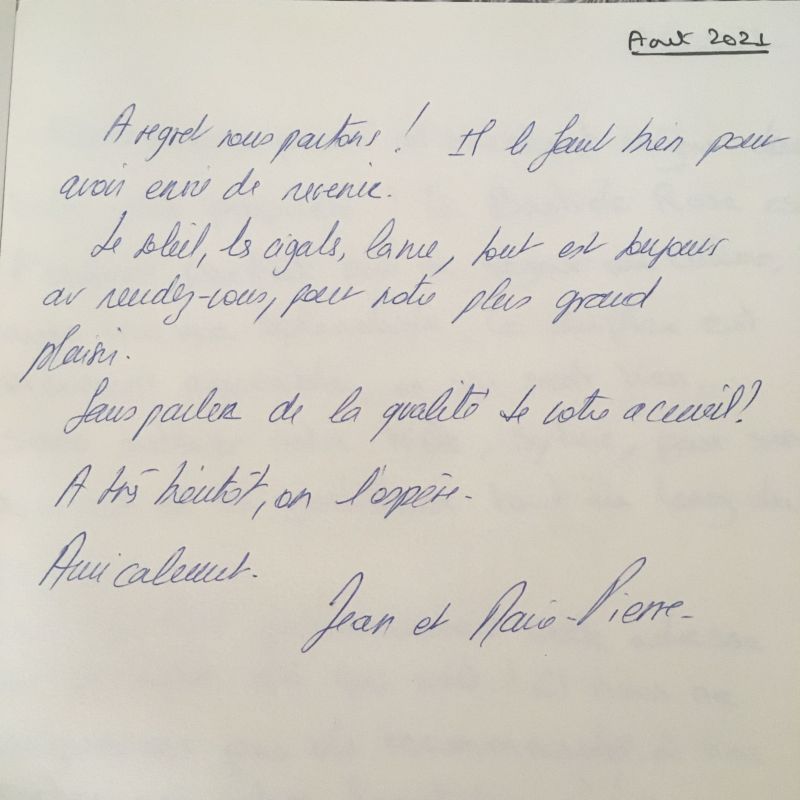 Aout 2021
A regret nous partons ! Il le faut bien pour
avoir envie de revenir.
Le soleil, les cigals, l'amie, tout est toujours
au rendez-vous, pour notre plus grand
plaisir.
Sans parler de la qualité de votre accueil !
A très bientôt, on l'espère -
Amicalement.
Jean et Marie-Pierre -